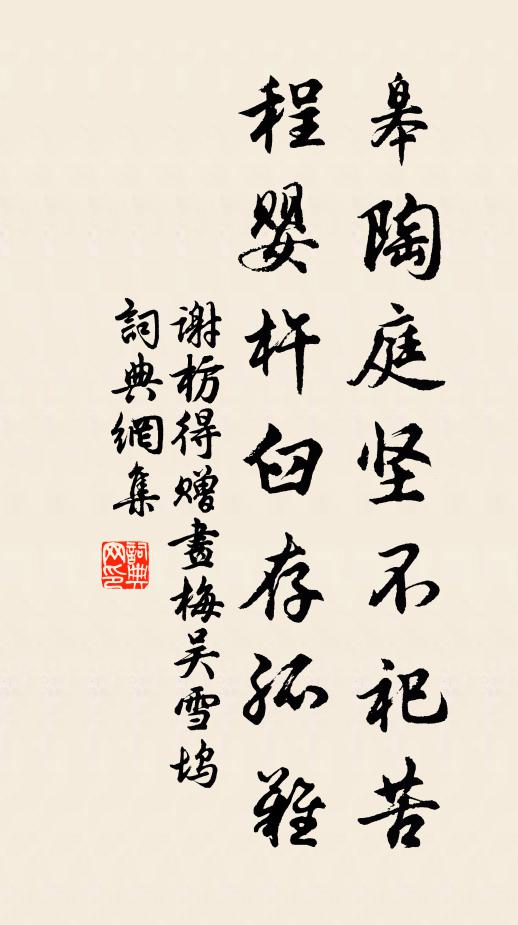 皋陶庭坚不祀苦
程婴杵臼存孤難
谢枋得赠畫梅吴雪坞
詞典網集
詞典网印